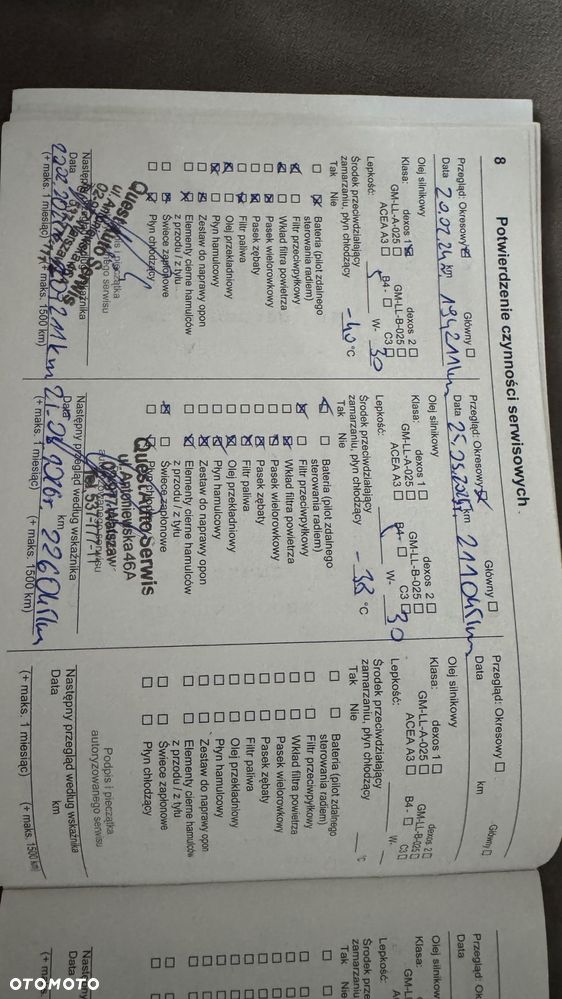 8
Potwierdzenie czynności serwisowych
Przegląd: Okresowy Główny
Data 20.02.24 km 194211km
Olej silnikowy
Klasa: dexos 1 dexos 2
GM-LL-A-025 GM-LL-B-025
ACEA A3 B4 - C3
Lepkość: 5 W- 30
Środek przeciwdziałający
zamarzaniu, płyn chłodzący -40 °C
Tak Nie
Bateria (pilot zdalnego
sterowania radiem)
Filtr przeciwpyłkowy
Wkład filtra powietrza
Pasek wielorowkowy
Pasek zębaty
Filtr paliwa
Olej przekładniowy
Płyn hamulcowy
Zestaw do naprawy opon
Elementy cierne hamulców
z przodu / z tyłu
Świece zapłonowe
Płyn chłodzący
Następny przegląd według wskaźnika
Data
(+ maks. 1 miesiąc) (+ maks. 1500 km)
Przegląd: Okresowy Główny
Data km 211045km
Olej silnikowy
Klasa: dexos 1 dexos 2
GM-LL-A-025 GM-LL-B-025
ACEA A3 B4 - C3
Lepkość: 5 W- 30
Środek przeciwdziałający
zamarzaniu, płyn chłodzący -38 °C
Tak Nie
Bateria (pilot zdalnego
sterowania radiem)
Filtr przeciwpyłkowy
Wkład filtra powietrza
Pasek wielorowkowy
Pasek zębaty
Filtr paliwa
Olej przekładniowy
Płyn hamulcowy
Zestaw do naprawy opon
Elementy cierne hamulców
z przodu / z tyłu
Świece zapłonowe
Płyn chłodzący
Quest Auto Serwis
ul. Antoniewska 46A
Następny przegląd według wskaźnika
Data km
226045km
(+ maks. 1 miesiąc) (+ maks. 1500 km)
Przegląd: Okresowy Główny
Data km
Olej silnikowy
Klasa: dexos 1 dexos 2
GM-LL-A-025 GM-LL-B-025
ACEA A3 B4 - C3
Lepkość: W-
Środek przeciwdziałający
zamarzaniu, płyn chłodzący °C
Tak Nie
Bateria (pilot zdalnego
sterowania radiem)
Filtr przeciwpyłkowy
Wkład filtra powietrza
Pasek wielorowkowy
Pasek zębaty
Filtr paliwa
Olej przekładniowy
Płyn hamulcowy
Zestaw do naprawy opon
Elementy cierne hamulców
z przodu / z tyłu
Świece zapłonowe
Płyn chłodzący
Podpis i pieczątka
autoryzowanego serwisu
Następny przegląd według wskaźnika
Data km
(+ maks. 1 miesiąc) (+ maks. 1500 km)
Data
Olej silnikowy
Klasa:
Lepkość:
Środek
zamarzaniu
Tak Nie
Data
OTOMOTO